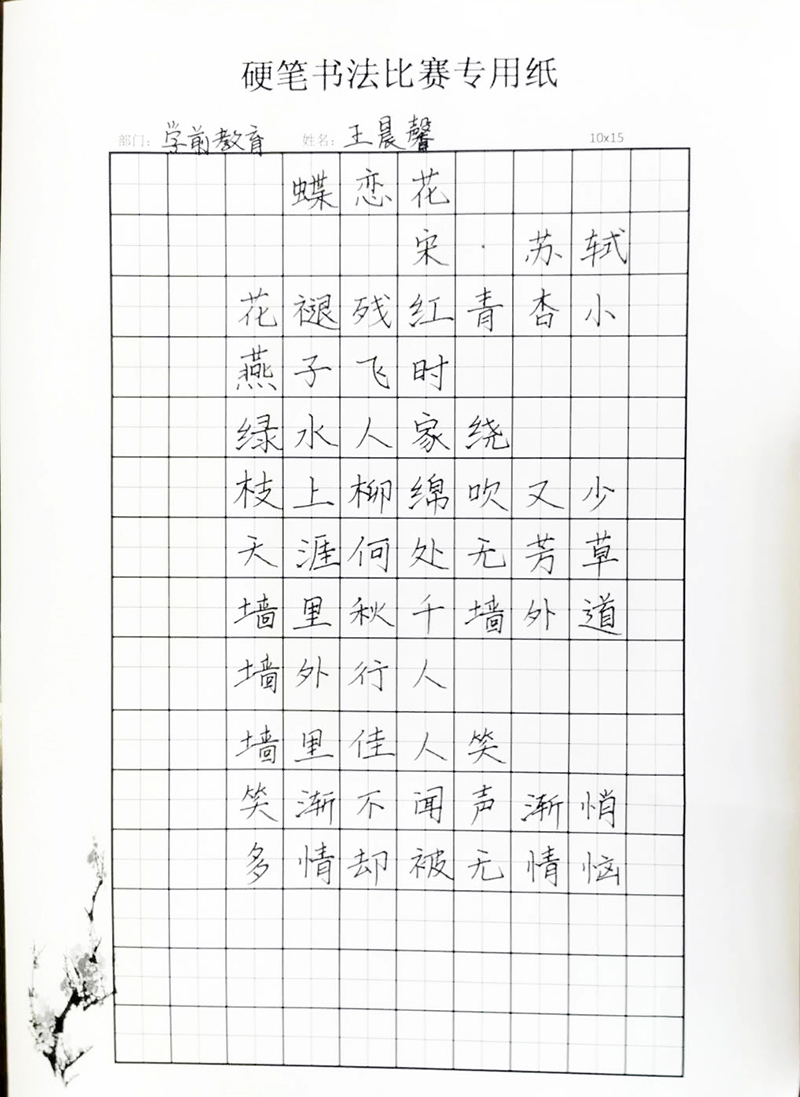 硬笔书法比赛专用纸
部门：学前教育 姓名：王晨馨 10x15
蝶恋花
宋·苏轼
花褪残红青杏小
燕子飞时
绿水人家绕
枝上柳绵吹又少
天涯何处无芳草
墙里秋千墙外道
墙外行人
墙里佳人笑
笑渐不闻声渐悄
多情却被无情恼